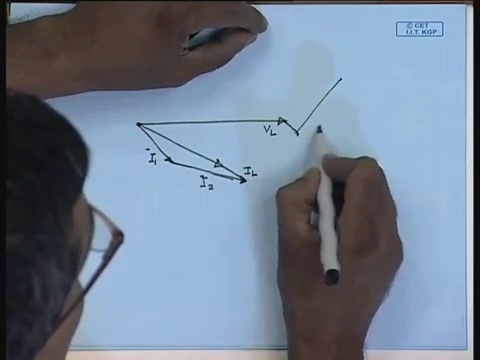 © CET
I.I.T. KGP
V_L
I_1
I_L
I_2